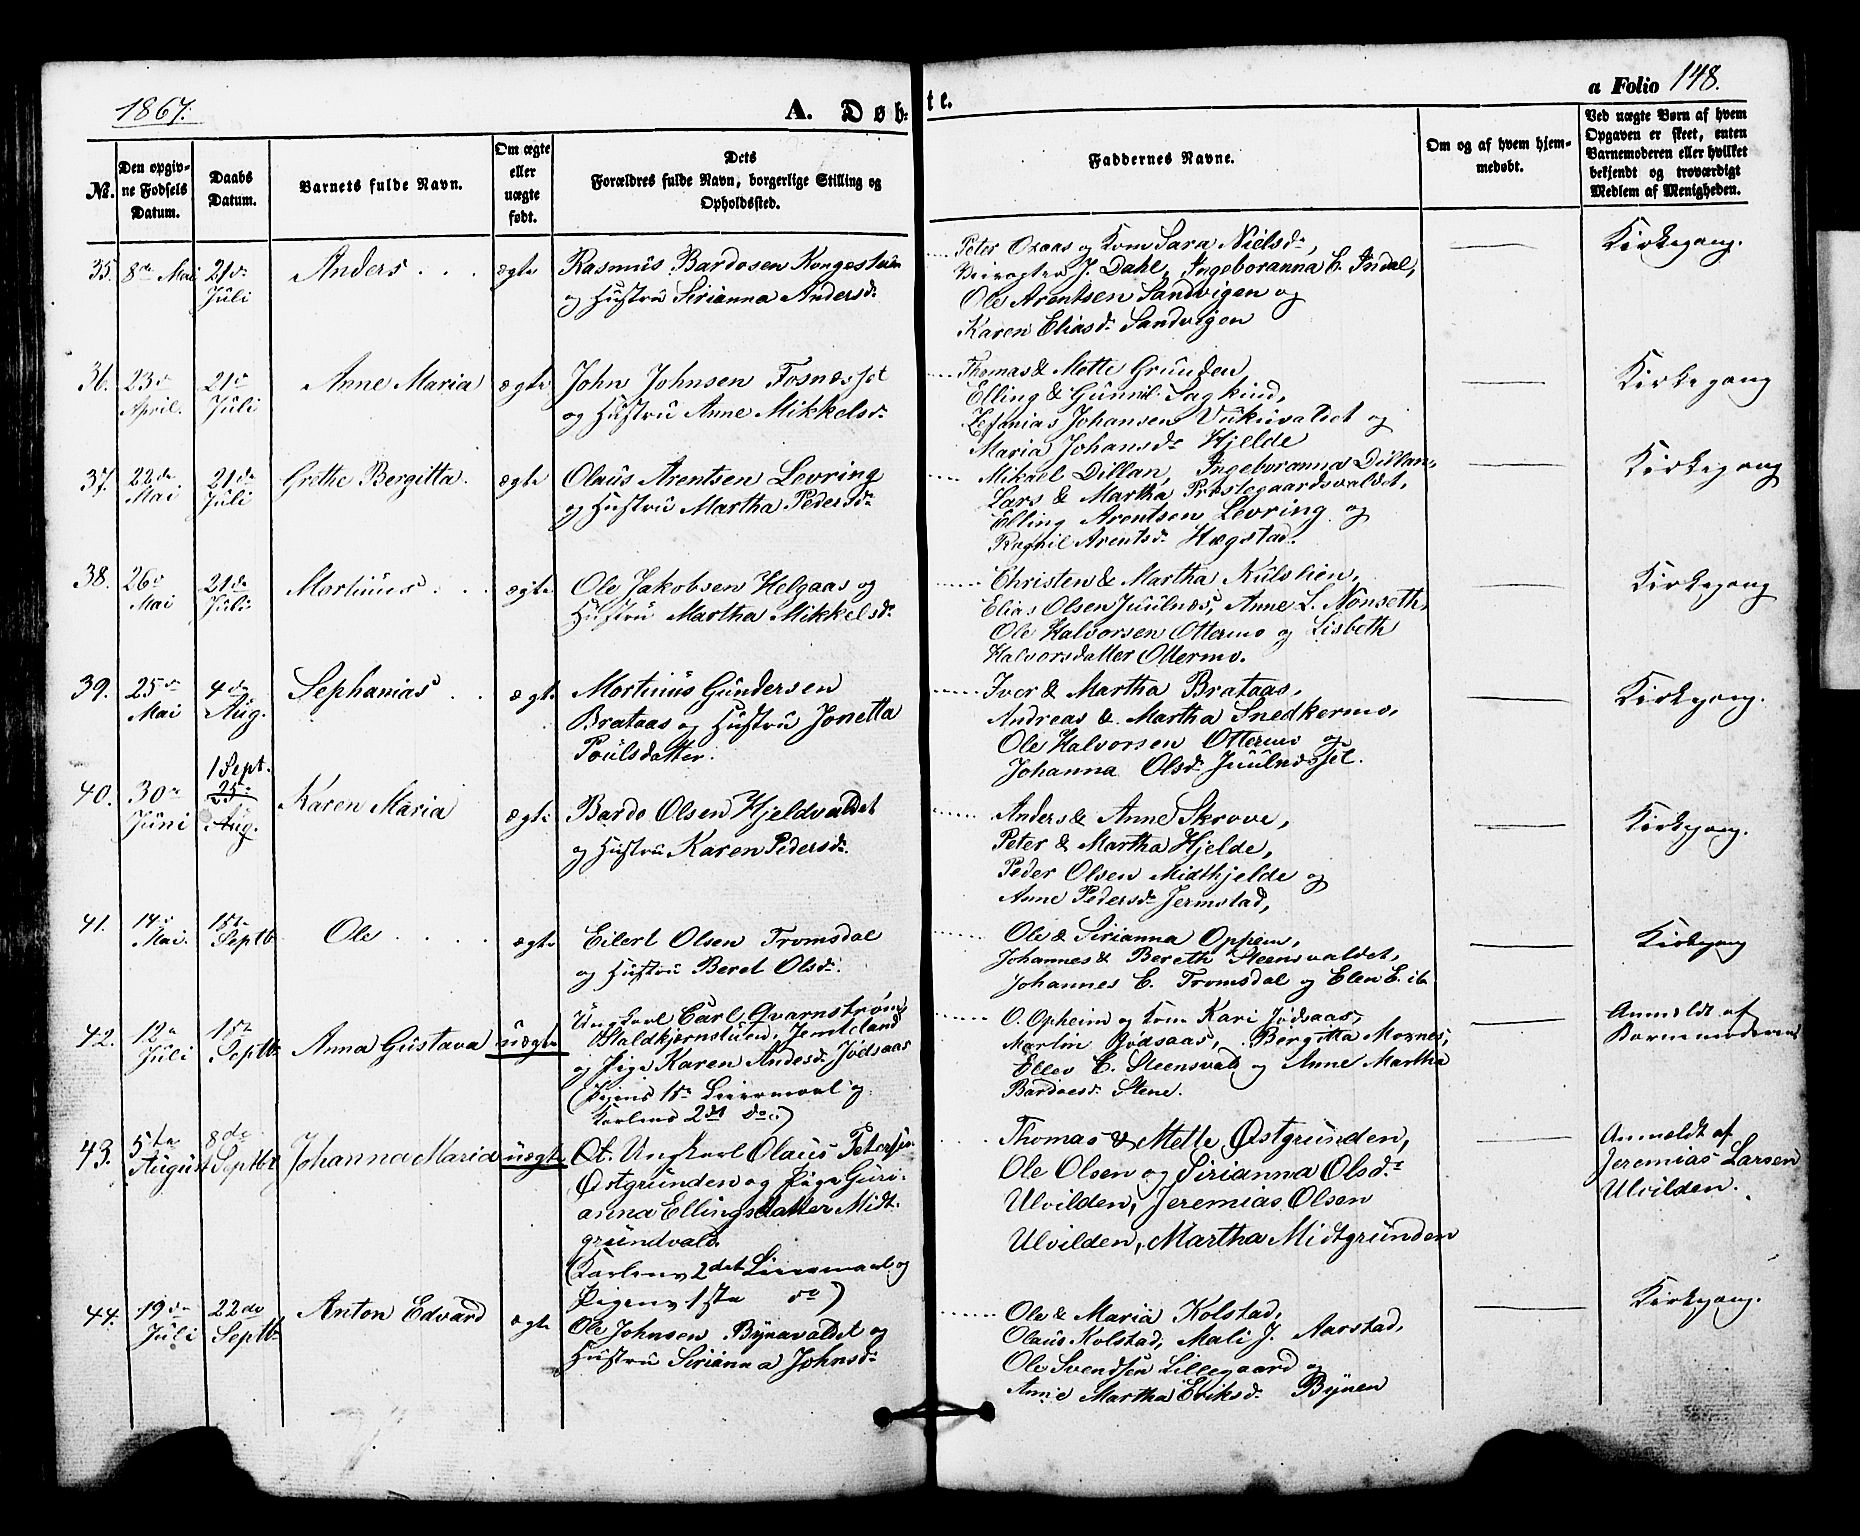 1867.
A. Døb-
te.
a Folio 148.
№.
Den opgiv-
ne Fødsels
Datum.
Daabs
Datum.
Barnets fulde Navn.
Om ægte
eller
uægte
født.
Dets
Forældres fulde Navn, borgerlige Stilling og
Opholdssted.
Faddernes Navne.
Om og af hvem hjem-
medøbt.
Ved uægte Børn af hvem
Opgaven er skeet, enten
Barnemoderen eller hvilket
bekjendt og troværdigt
Medlem af Menigheden.
35. 8de Mai
21de
Juli
Anders . . .
ægte
Rasmus Bardosen
og Hustru Sirianna Andersd.
Peter Oxaas og Kone Sara Nielsd.,
J. Dahl, Ingeboranna E. Indal,
Ole Arentsen Sandvigen og
Karen Eliasd. Sandvigen
Kirkegang.
36. 23de
April.
21de
Juli
Anne Maria
ægte
John Johnsen Fosnesset
og Hustru Anne Mikkelsd.
Thomas & Mette Grunden,
Elling & Gunnil Sagkind,
Zefanias Johansen Vukuvaldet og
Maria Johansd. Hjelde
Kirkegang
37. 22de
Mai
21de
Juli
Grethe Bergitta.
ægte
Olaus Arentsen Levring
og Hustru Martha Pedersd.
Mikael Dillan, Ingeboranna Dillan,
Lars & Martha Præstegaardsvaldet,
Elling Arentsen Levring og
Ragnil Arentsd. Hægstad.
Kirkegang
38. 26de
Mai
21de
Juli
Mortinus . . .
ægte
Ole Jakobsen Helgaas og
Hustru Martha Mikkelsd.
Christen & Martha Kulslien,
Elias Olsen Juulnes, Anne L. Nonseth,
Ole Halvorsen Ottermo og Lisbeth
Halvorsdatter Ottermo.
Kirkegang
39. 25de
Mai
4de
Aug.
Sephanias . .
ægte
Mortinus Gundersen
Brataas og Hustru Jonetta
Poulsdatter.
Iver & Martha Brataas,
Andreas & Martha Snedkermo,
Ole Halvorsen Ottermo og
Johanna Olsd. Juulnesset.
Kirkegang.
40. 30te
Juni
1 Sept.
25de
Aug.
Karen Maria
ægte
Bardo Olsen Hjeldvaldet
og Hustru Karen Pedersd.
Anders & Anne Skrove,
Peter & Martha Hjelde,
Peder Olsen Midthjelde og
Anne Pedersd. Jermstad,
Kirkegang.
41. 14de
Mai.
15de
Septb.
Ole . . . .
ægte
Eilert Olsen Tromsdal
og Hustru Beret Olsd.
Ole & Sirianna Ophem,
Johannes & Bereth Steensvaldet,
Johannes E. Tromsdal og Elen E. ib.
Kirkegang
42. 12te
Juli
15de
Septb.
Anna Gustava
uægte
Ungkarl Carl Qvarnstrøm
Jemteland
og Pige Karen Andersd. Jødsaas
(Pigens 1ste Leiermaal og
Karlens 2det do.)
O. Opheim og Kone Kari Jødsaas,
Martin Jødsaas, Bergitta Moxnes,
Ellev E. Steensvald og Anne Martha
Bardoesd. Stene.
Anmeldt af
Barnemoderen
43. 5te
August
8de
Septbr
Johanna Maria
uægte
Ungkarl Olaus Petersen
Østgrunden og Pige Guri-
anna Ellingsdatter Midt-
grundvald.
(Karlens 2det Leiermaal og
Pigens 1ste do)
Thomas & Mette Østgrunden,
Ole Olsen og Sirianna Olsd.
Ulvilden, Jeremias Olsen
Ulvilden, Martha Midtgrunden
Anmeldt af
Jeremias Larsen
Ulvilden.
44. 19de
Juli
22de
Septb.
Anton Edvard
ægte
Ole Johnsen Bynavaldet og
Hustru Sirianna Johnsd.
Ole & Maria Kolstad,
Olaus Kolstad, Mali J. Aarstad,
Ole Svendsen Lillegaard og
Anne Martha Eriksd. Bynen
Kirkegang.